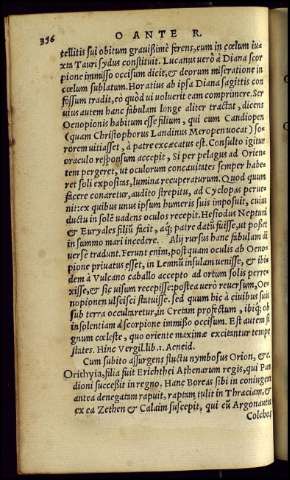 356 O ANTE R.
tellitis sui obitum grauißimè ferens, eum in cœlum iu-
xta Tauri sydus constituit. Lucanus verò à Diana scor
pione immisso occisum dicit, & deorum miseratione in
cœlum sublatum. Horatius ab ipsa Diana sagittis con
fossum tradit, eò quòd ui uoluerit eam comprimere. Ser
uius autem hanc fabulam longe aliter tractat, dicens
Oenopionis habitum esse filium, qui cum Candiopen
(quam Christophorus Landinus Meropen uocat) so-
rorem uitiasset, à patre excæcatus est. Consulto igitur
oraculo responsum accepit, Si per pelagus ad Orien-
tem pergeret, ut oculorum concauitates semper habe-
ret soli expositas, lumina recuperaturum. Quod quum
facere conaretur, audito strepitu, ad Cyclopas perue-
nit: ex quibus unus ipsum humeris suis imposuit, cuius
ductu in solē uadens oculos recepit. Hesiodus Neptuni
& Euryales filiū facit, atq; patre datū fuisse, ut posset
in summo mari incedere. Alij rursus hanc fabulam di
uerse tradunt. Ferunt enim, postquam oculis ab Oeno-
pione priuatus esset, in Lemnū insulam uenisse, & ibi-
dem à Vulcano caballo accepto ad ortum solis perre-
xisse, & sic uisum recepisse: postea uerò reuersum, Oe-
nopionem ulcisci statuisse. sed quum hic à ciuibus suis
sub terra occultaretur, in Cretam profectum, ibiq; ob
insolentiam à scorpione immisso occisum. Est autem si-
gnum cœleste, quo oriente maximæ excitantur tempe
states. Hinc Vergil. lib. 1. Aeneid.
Cum subito assurgens fluctu nymbosus Orion, &c.
Orithyia, filia fuit Erichthei Athenarum regis, qui Pan
dioni successit in regno. Hanc Boreas sibi in coniugem
antea denegatam rapuit, raptam tulit in Thraciam, &
ex ea Zethen & Calaim suscepit, qui cū Argonautis
Colchos